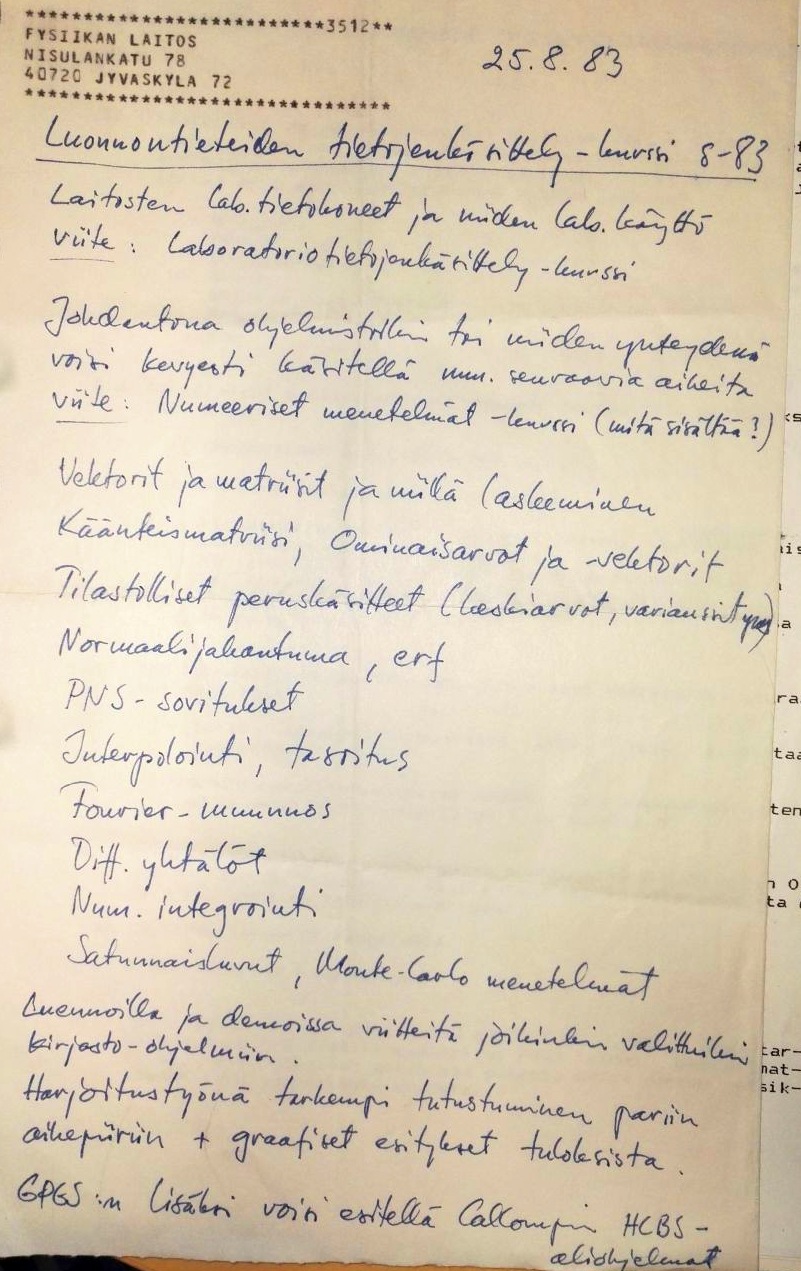 **************************3512**
FYSIIKAN LAITOS
NISULANKATU 78
40720 JYVASKYLA 72
********************************
25.8.83
Luonnontieteiden tietojenkäsittely-kurssi s-83
Laitosten lab.tietokoneet ja niiden lab. käyttö
viite: Laboratoriotietojenkäsittely-kurssi
Johdantona ohjelmistoihin tai niiden yhteydessä
voisi kevyesti käsitellä mm. seuraavia aiheita
viite: Numeeriset menetelmät -kurssi (mitä sisältää?)
Vektorit ja matriisit ja niillä laskeminen
Käänteismatriisi, Ominaisarvot ja -vektorit
Tilastolliset peruskäsitteet (keskiarvot, varianssit yms)
Normaalijakautuma, erf
PNS-sovitukset
Interpolointi, tasoitus
Fourier-muunnos
Diff. yhtälöt
Num. integrointi
Satunnaisluvut, Monte-Carlo menetelmät
Luennoilla ja demoissa viitteitä joihinkin valittuihin
kirjasto-ohjelmiin.
Harjoitustyönä tarkempi tutustuminen pariin
aihepiiriin + graafiset esitykset tuloksista.
GPGS:n lisäksi voisi esitellä Calcompin HCBS-
aliohjelmat